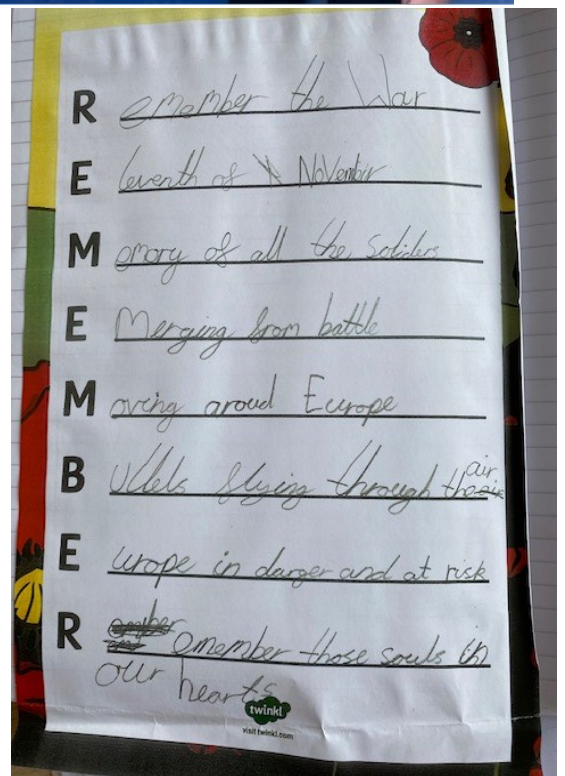 R emember the War
E leventh of November
M emory of all the Soliders
E Merging from battle
M oving aroud Europe
B ullets flying through the air
E urope in danger and at risk
R emember those souls in
our hearts
twinkl
visit twinkl.com